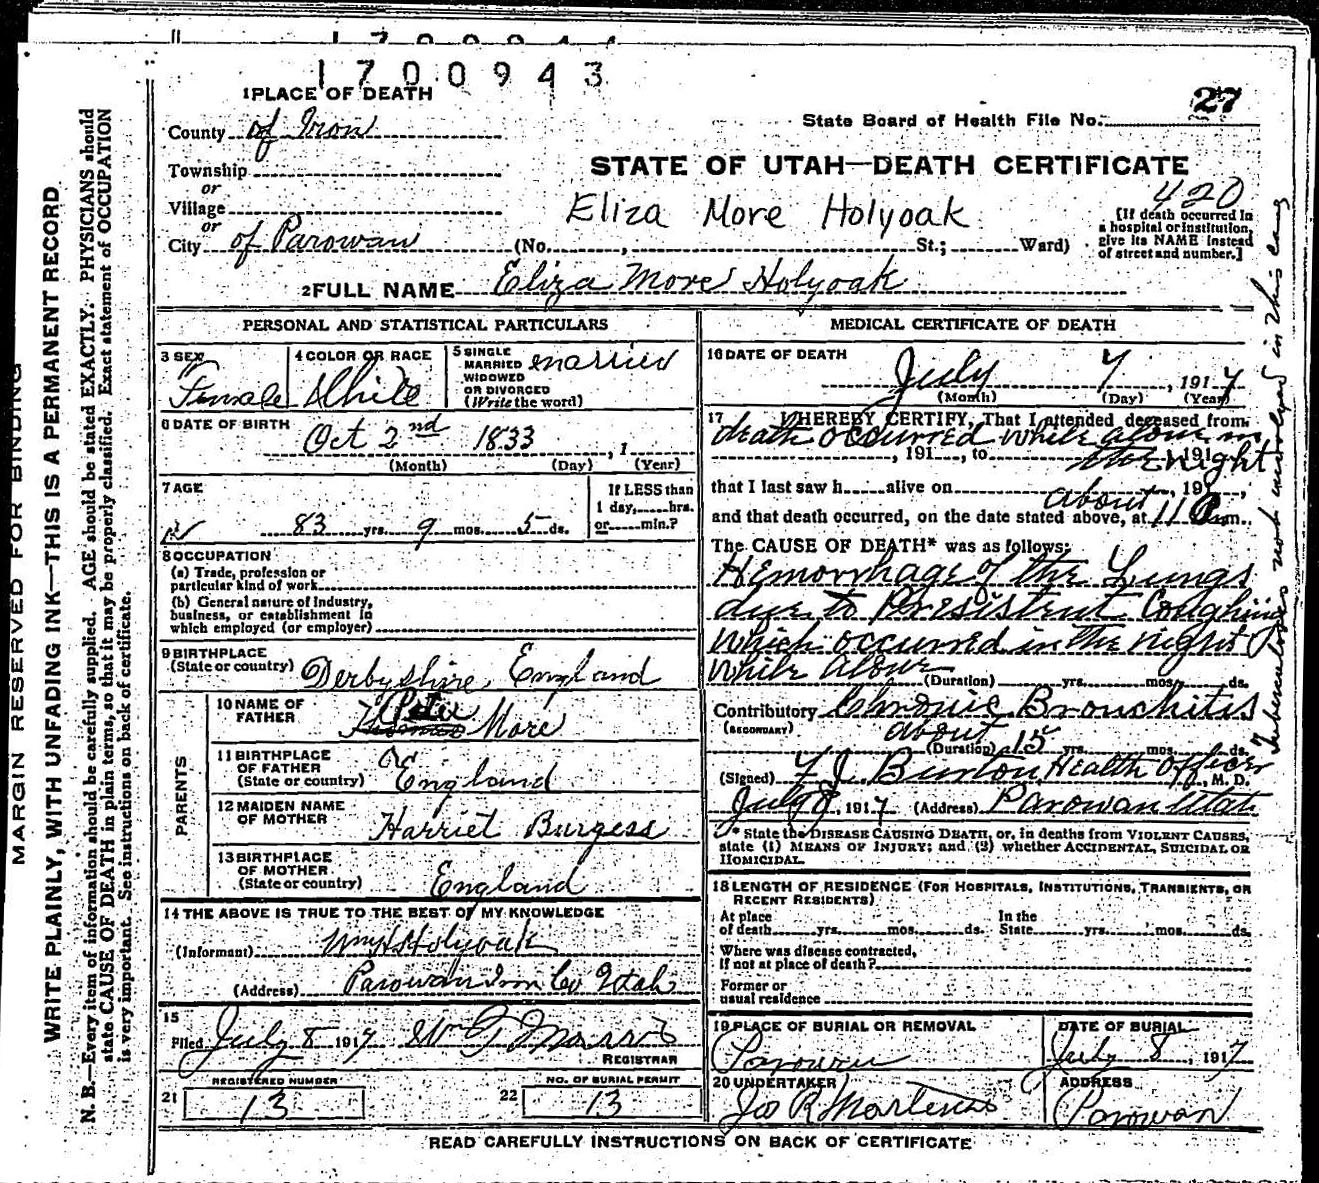 1700943
1 PLACE OF DEATH
County of Iron
Township
or
Village
or
City of Parowan
State Board of Health File No. 27
STATE OF UTAH—DEATH CERTIFICATE
420
Eliza More Holyoak
(No. , St.; Ward)
[If death occurred in
a hospital or institution,
give its NAME instead
of street and number.]
2 FULL NAME Eliza More Holyoak
MARGIN RESERVED FOR BINDING
WRITE PLAINLY, WITH UNFADING INK—THIS IS A PERMANENT RECORD
N. B.—Every item of information should be carefully supplied. AGE should be stated EXACTLY. PHYSICIANS should
state CAUSE OF DEATH in plain terms, so that it may be properly classified. Exact statement of OCCUPATION
is very important. See instructions on back of certificate.
PERSONAL AND STATISTICAL PARTICULARS
3 SEX
Female
4 COLOR OR RACE
White
5 SINGLE
MARRIED
WIDOWED
OR DIVORCED
(Write the word)
married
6 DATE OF BIRTH
Oct 2nd 1833 , 1
(Month) (Day) (Year)
7 AGE
83 yrs. 9 mos. 5 ds.
If LESS than
1 day, hrs.
or min.?
8 OCCUPATION
(a) Trade, profession or
particular kind of work
(b) General nature of Industry,
business, or establishment in
which employed (or employer)
9 BIRTHPLACE
(State or country) Derbyshire, England
PARENTS
10 NAME OF
FATHER
Thomas More
11 BIRTHPLACE
OF FATHER
(State or country) England
12 MAIDEN NAME
OF MOTHER Harriet Burgess
13 BIRTHPLACE
OF MOTHER
(State or country) England
14 THE ABOVE IS TRUE TO THE BEST OF MY KNOWLEDGE
(Informant) Wm H Holyoak
(Address) Parowan Iron Co Utah
15
Filed July 8 1917 W G
REGISTRAR
21 REGISTERED NUMBER
13
22 NO. OF BURIAL PERMIT
13
MEDICAL CERTIFICATE OF DEATH
16 DATE OF DEATH
July 7 , 1917
(Month) (Day) (Year)
17 I HEREBY CERTIFY, That I attended deceased from
death occurred while alone in
, 191 , to , 191
the night
that I last saw h alive on , 191 ,
about
and that death occurred, on the date stated above, at 11 P m.
The CAUSE OF DEATH* was as follows:
Hemorrhage of the Lungs
due to Persistent Coughing
which occurred in the night
while alone
(Duration) yrs. mos. ds.
Contributory Chronic Bronchitis
(SECONDARY)
about
(Duration) 15 yrs. mos. ds.
(Signed) F J Burton Health Officer M. D.
July 8, 1917 (Address) Parowan Utah
* State the DISEASE CAUSING DEATH, or, in deaths from VIOLENT CAUSES,
state (1) MEANS OF INJURY; and (2) whether ACCIDENTAL, SUICIDAL OR
HOMICIDAL.
Tuberculosis not involved in this case
18 LENGTH OF RESIDENCE (FOR HOSPITALS, INSTITUTIONS, TRANSIENTS, OR
RECENT RESIDENTS)
At place
of death yrs. mos. ds.
In the
State yrs. mos. ds.
Where was disease contracted,
If not at place of death?
Former or
usual residence
19 PLACE OF BURIAL OR REMOVAL
Parowan
DATE OF BURIAL
July 8, 1917
20 UNDERTAKER
ADDRESS
Parowan
READ CAREFULLY INSTRUCTIONS ON BACK OF CERTIFICATE